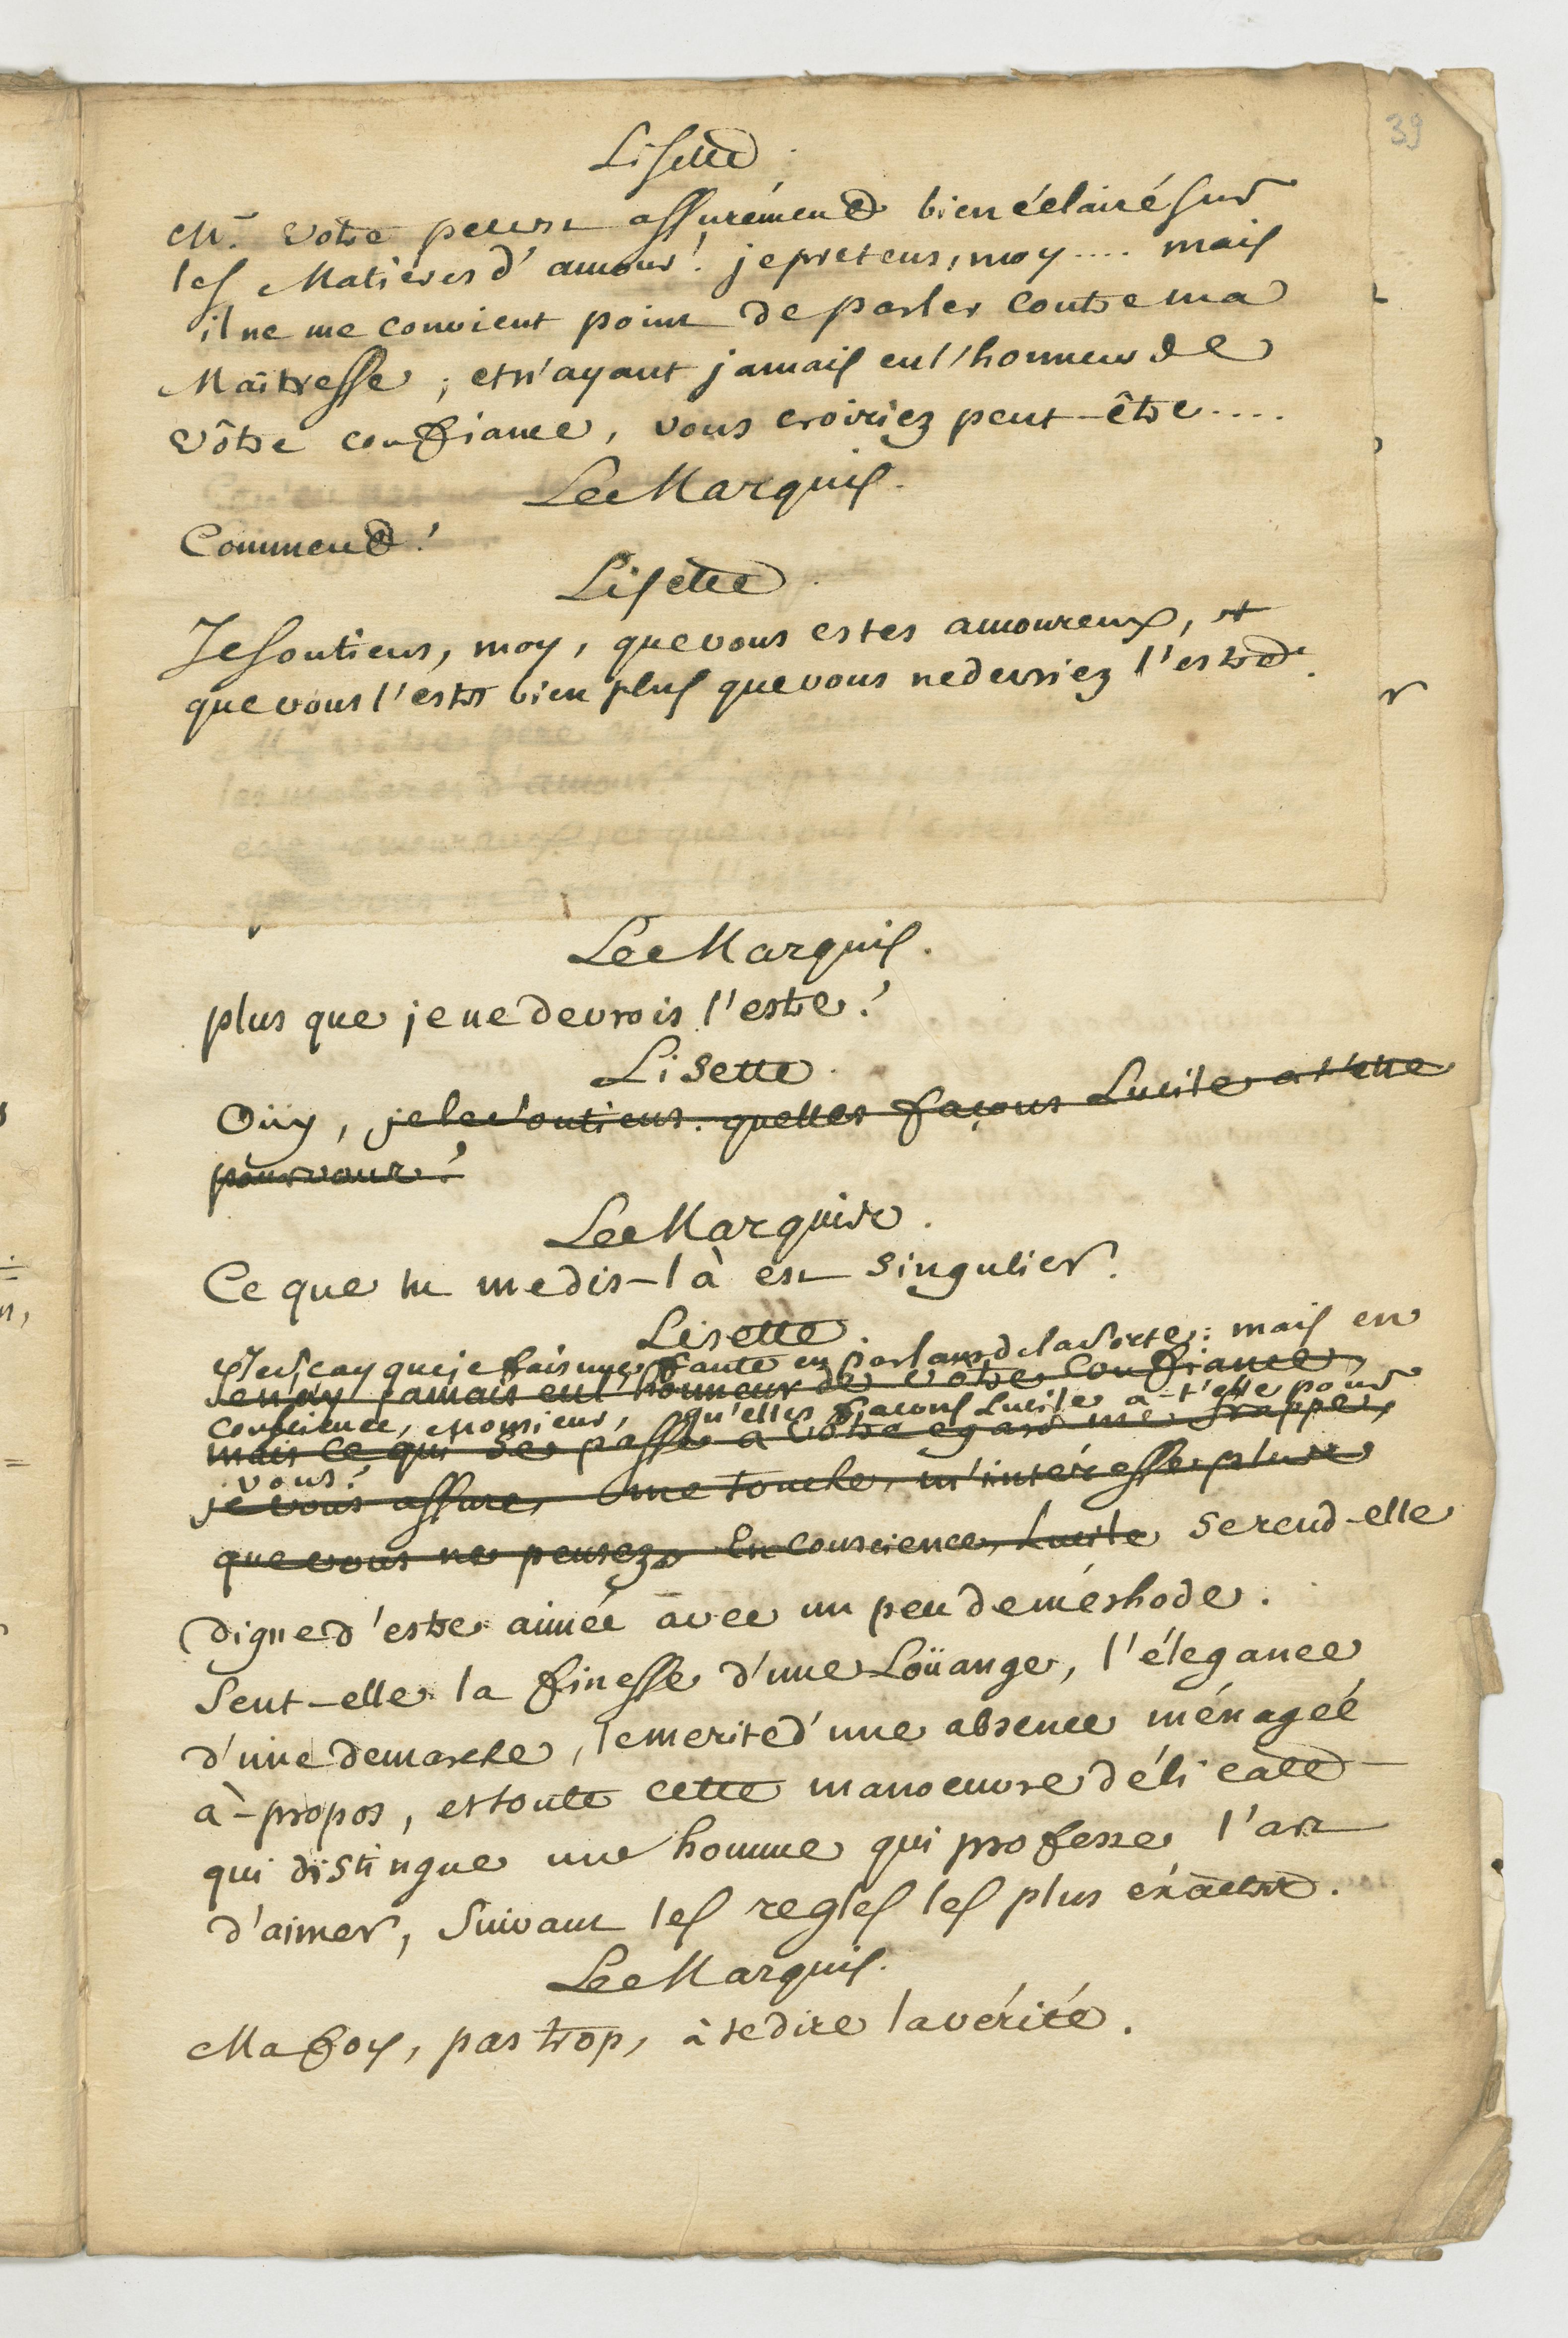 39
Lisette.
Mr. votre pere est assurément bien éclairé sur
les Matieres d'amour! je pretens, moy.... mais
il ne me convient point de parler contre ma
Maîtresse; et n'ayant jamais eu l'honneur de
vôtre confiance, vous croiriez peut-être....
Le Marquis.
Comment!
Lisette.
Je soutiens, moy, que vous estes amoureux, et
que vous l'estes bien plus que vous ne devriez l'estre.
Le Marquis.
plus que je ne devrois l'estre!
Lisette.
Oüy, je le soutiens. quelles façons Lucile a t'elle
pour vous!
Le Marquis.
Ce que tu me dis-là est singulier!
Lisette.
Je sçay que je fais une faute en parlant de la sorte: mais en
Je n'ay jamais eu l'honneur de vôtre confiance,
conscience, Monsieur, qu'elles façons Lucile a-t'elle pour
mais ce qui se passe à vôtre egard me frappe,
vous!
je vous assure, me touche, m'intéresse plus
que vous ne pensez. En conscience, Lucile se rend-elle
digne d'estre aimée avec un peu de méthode.
Sent-elle la finesse d'une Loüange, l'élegance
d'une demarche, le merite d'une absence ménagée
à-propos, et toute cette manoeuvre délicate
qui distingue un homme qui professe l'art
d'aimer, Suivant les regles les plus éxactes.
Le Marquis.
Ma foy, pas trop, à te dire la vérité.